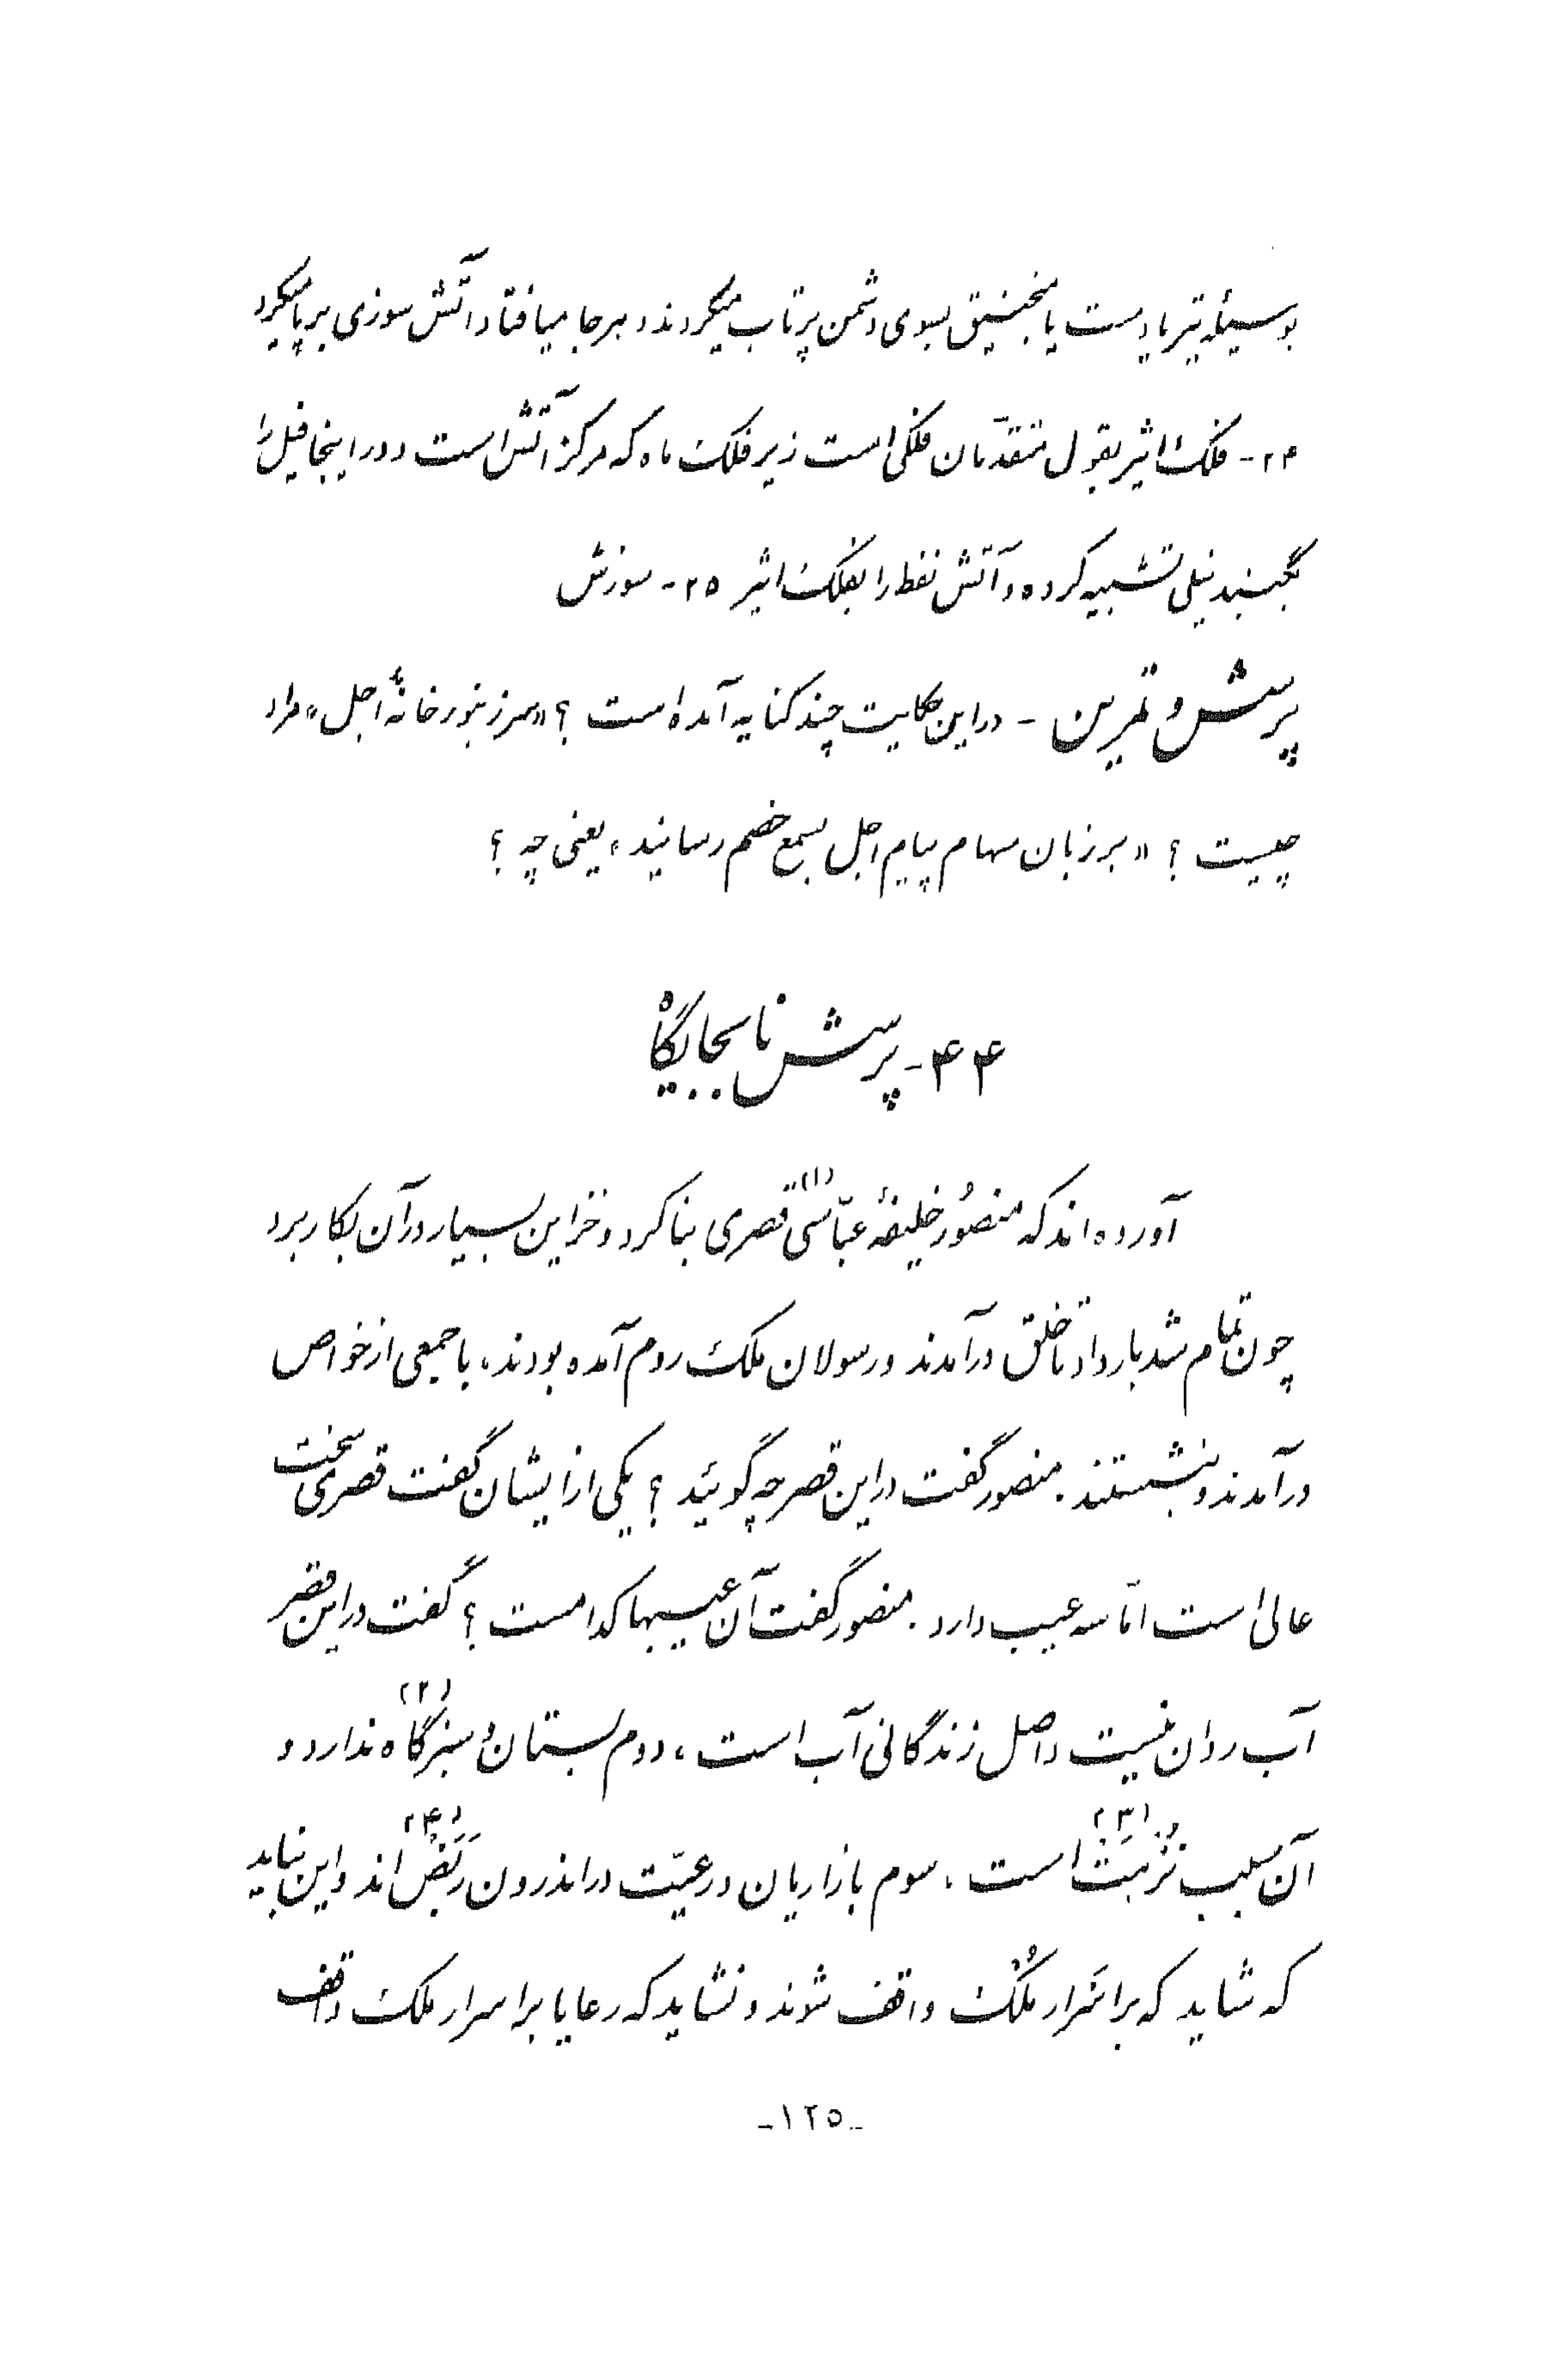 بوسیلهٔ تیر یا دست یا منجنیق بسوی دشمن پرتاب میکردند و بهر جا میافتاد آتش سوزی بر پا میکرد
۲۴- فلک اثیر بقول متقدّمان فلکی است زیر فلک ماه که مرکز آتش است و در اینجا فیل را
بگنبد نیلی تشبیه کرده و آتش نفط را بفلک اثیر ۲۵- سوزش
پرسش و تمرین - در این حکایت چند کنایه آمده است ؟ «سر زنبور خانهٔ اجل» مراد
چیست ؟ «بر زبان سهام پیام اجل بسمع خصم رسانید» یعنی چه ؟
۴۴- پرسش نابجایگاه
آورده‌اند که منصُور خلیفهٔ عبّاسی(۱) قصری بنا کرد و خزاین بسیار در آن بکار برد
چون تمام شد بار داد تا خلق درآمدند و رسولان ملک روم آمده بودند، با جمعی از خواص
درآمدند و بنشستند. منصور گفت در این قصر چه گوئید ؟ یکی از ایشان گفت قصری سخت
عالی است امّا سه عیب دارد. منصور گفت آن عیبها کدامست ؟ گفت در این قصر
آب روان نیست و اصل زندگانی آب است، دوم بستان و سبزگاه(۲) ندارد و
آن سبب نُزهَت(۳) است، سوم بازاریان و رعیّت در اندرون رَبَض(۴) اند و این نباید
که شاید که بر اسَرار مُلْک واقف شوند و نشاید که رعایا بر اسرار ملک واقف
-۱۲۵-